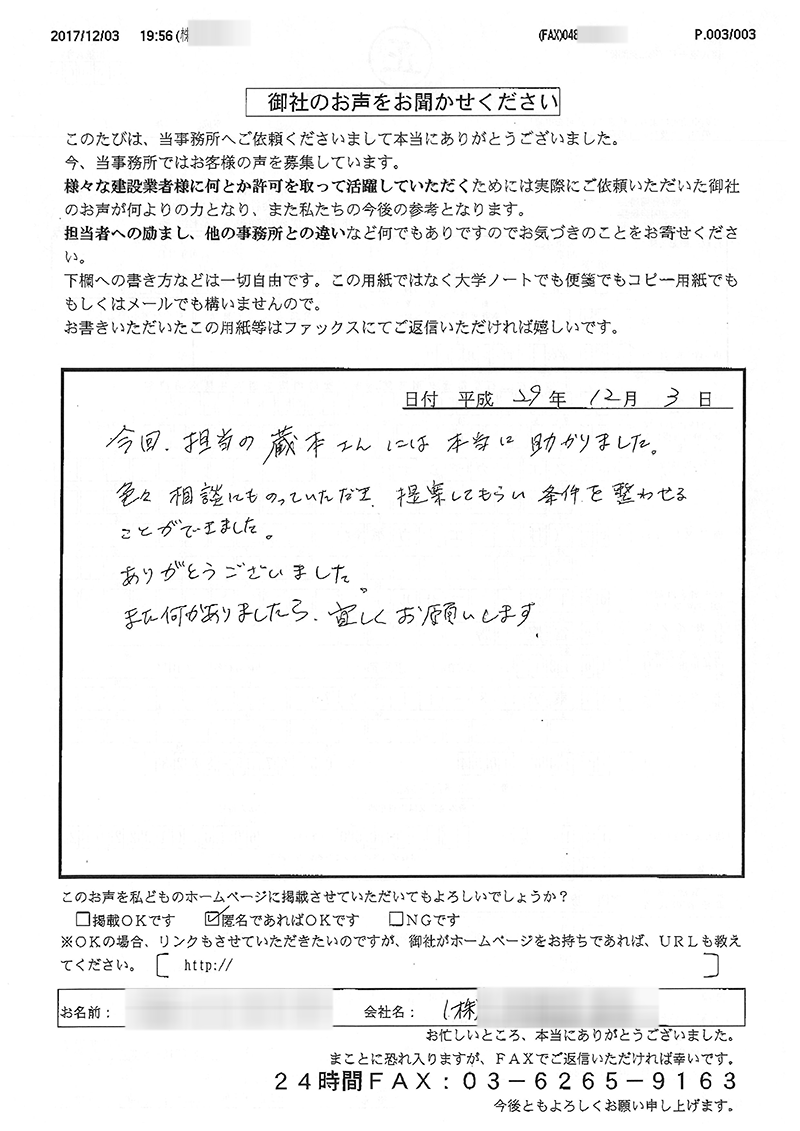 2017/12/03 19:56(株 (FAX)048 P.003/003
御社のお声をお聞かせください
このたびは、当事務所へご依頼くださいまして本当にありがとうございました。
今、当事務所ではお客様の声を募集しています。
様々な建設業者様に何とか許可を取って活躍していただくためには実際にご依頼いただいた御社
のお声が何よりの力となり、また私たちの今後の参考となります。
担当者への励まし、他の事務所との違いなど何でもありですのでお気づきのことをお寄せくださ
い。
下欄への書き方などは一切自由です。この用紙ではなく大学ノートでも便箋でもコピー用紙でも
もしくはメールでも構いませんので。
お書きいただいたこの用紙等はファックスにてご返信いただければ嬉しいです。
日付 平成 29 年 12 月 3 日
今回、担当の蔵本さんには本当に助かりました。
色々相談にものっていただき、提案してもらい条件を整わせる
ことができました。
ありがとうございました。
また何かありましたら、宜しくお願いします。
このお声を私どものホームページに掲載させていただいてもよろしいでしょうか？
□掲載ＯＫです ☑匿名であればＯＫです □ＮＧです
※ＯＫの場合、リンクもさせていただきたいのですが、御社がホームページをお持ちであれば、ＵＲＬも教え
てください。［ http:// ］
お名前： 会社名： (株)
お忙しいところ、本当にありがとうございました。
まことに恐れ入りますが、ＦＡＸでご返信いただければ幸いです。
２４時間ＦＡＸ：０３－６２６５－９１６３
今後ともよろしくお願い申し上げます。